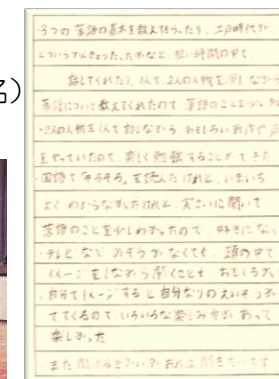 名)
・3つの落語の基本を教えてもらったり、江戸時代が
どういう
だったかなど、短い時間の中で、
話してくれたり、1人で、2人の人物を演じながら
落語について教えてくれたので落語のことを少し
・2人の人物を1人で話しながら、おもしろい
をやっていたので、楽しく勉強することができた
・国語で
を読んだけれど、いまいち
よくわからなかったけれど、実さいに聞いて
落語のことを少しわかったので、好きにな
・テレビなど
がなくても、頭の中で
イメージをしながら聞くことも、おもしろか
・自分でイメージすると自分なりの
が
でてくるのでいろいろな楽しみ方があって
楽しかった
・また聞け
があれば聞きたいです